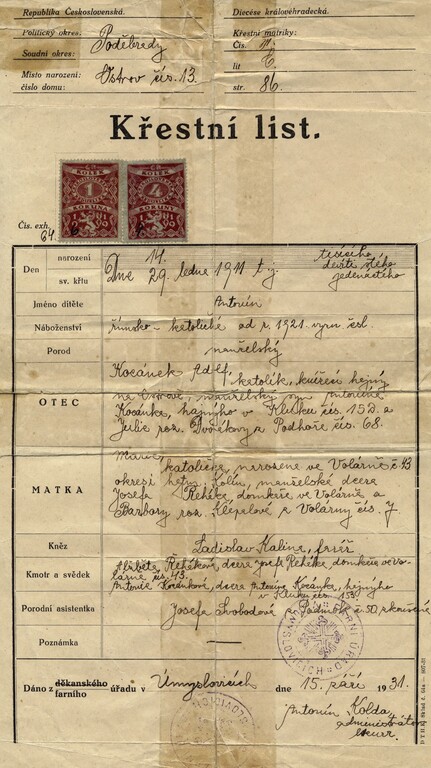 Republika Československá.
Diecése královéhradecká.
Politický okres:
Soudní okres: Poděbrady
Místo narození: Ostrov čís. 13.
číslo domu:
Křestní matriky:
Čís. 11.
lit C
str. 86.
Křestní list.
ČR KOLEK 1 KORUNA 19 19
ČR KOLEK 4 KORUNY 19 19
Čís. exh. 64.
Den narození sv. křtu
Dne 14. 29. ledna 1911 t. j. tisícího devítistého jedenáctého
Jméno dítěte Antonín
Náboženství římsko-katolické od r. 1921 vyzn. čsl.
Porod manželský
OTEC
Kocánek Adolf, katolík, hajný
na Ostrově, manželský syn Antonína
Kocánka, hajného v Kluku čís. 152 a
Julie roz. Dvořákovy z Podhoře čís. 68.
MATKA
Marie, katolička, narozena ve Volárně č. 43
okresní hejtm. Kolín, manželská dcera
Josefa Řeháka, domkáře ve Volárně, a
Barbory roz. Klepalové z Volárny čís. 7
Kněz Ladislav Kalina, farář
Kmotr a svědek
Alžběta Řeháková, dcera Josefa Řeháka, domkáře ve Volárně čís. 43.
Antonie Kocánková, dcera Antonína Kocánka, hajného
v Kluku čís. 152
Porodní asistentka Josefa Svobodová z Podmok č. 50 zkoušená
Poznámka —
Dáno z děkanského farního úřadu v Úmyslovicích dne 15. září 1931.
Antonín Kolda
administrátor
excurr.